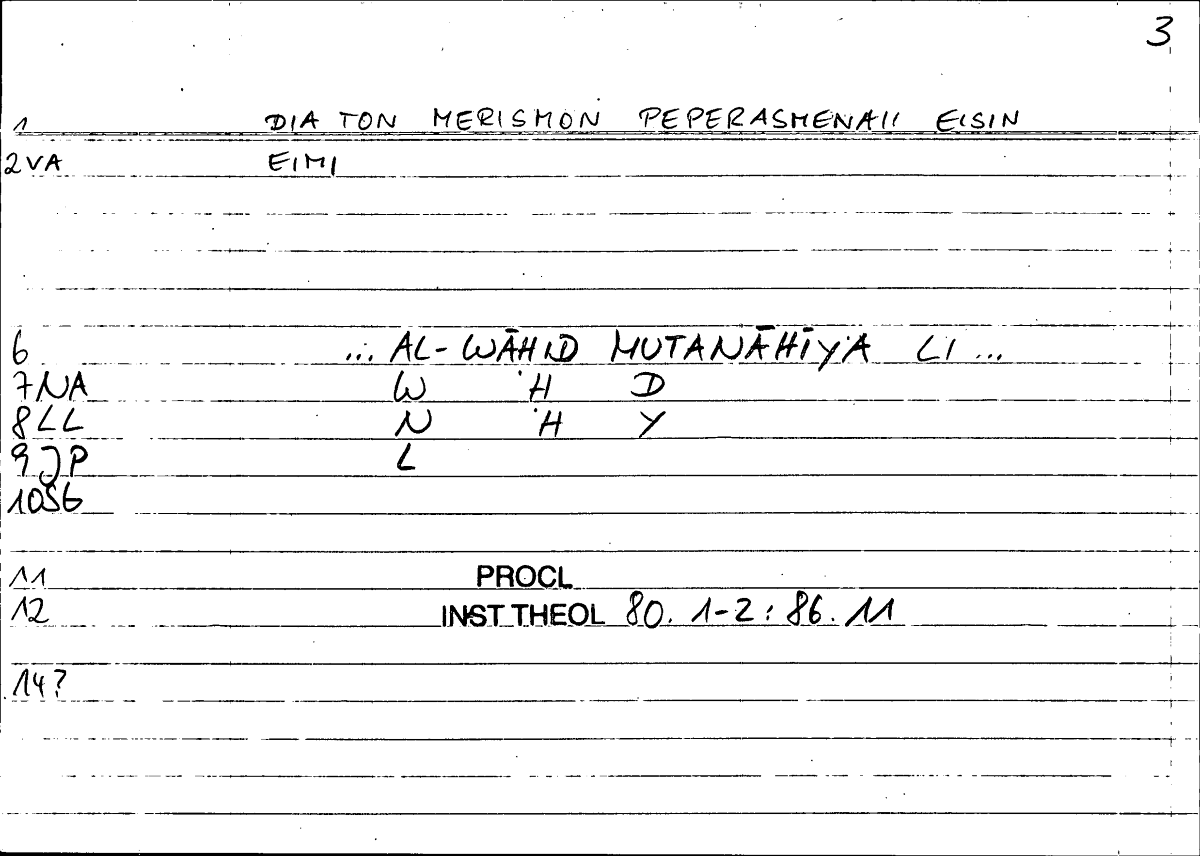 3
1 DIA TON MERISMON PEPERASMENAII EISIN
2VA EIMI
6 ... AL-WĀḤID MUTANĀHĪYA LI ...
7NA W Ḥ D
8LL N Ḥ Y
9JP L
10SG
11 PROCL
12 INST THEOL 80. 1-2 : 86. 11
14?